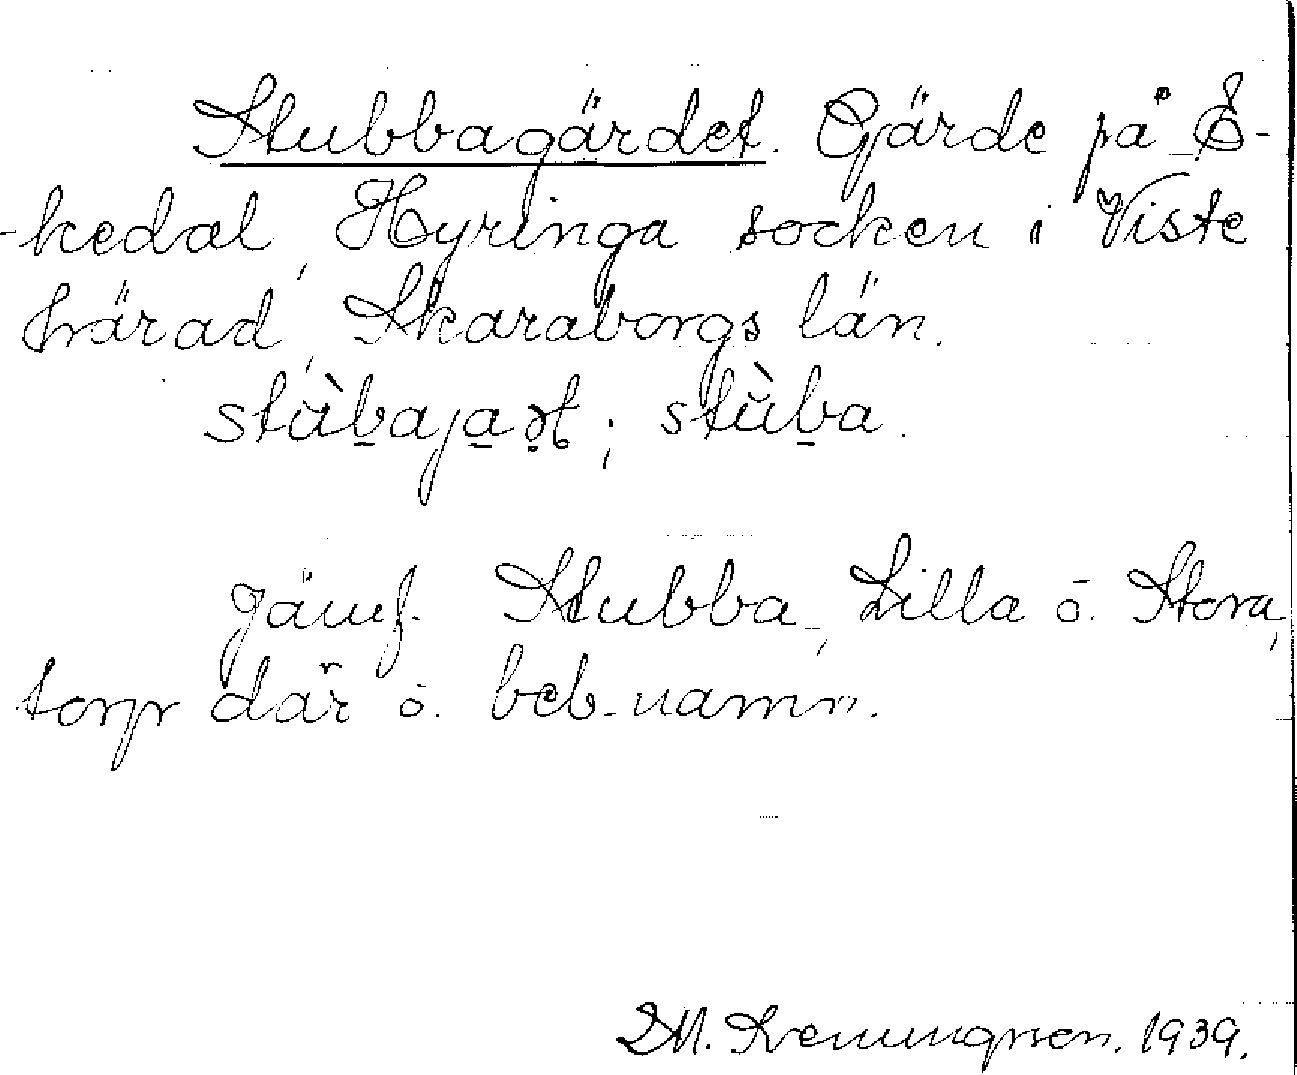 Stubbagärdet. Gärde på E-
-kedal, Hyringa socken i Viste
härad, Skaraborgs län.
stùbajaṛt; stùba.
Jämf. Stubba, Lilla o. Stora,
torp där o. beb-namn.
M. 1939.